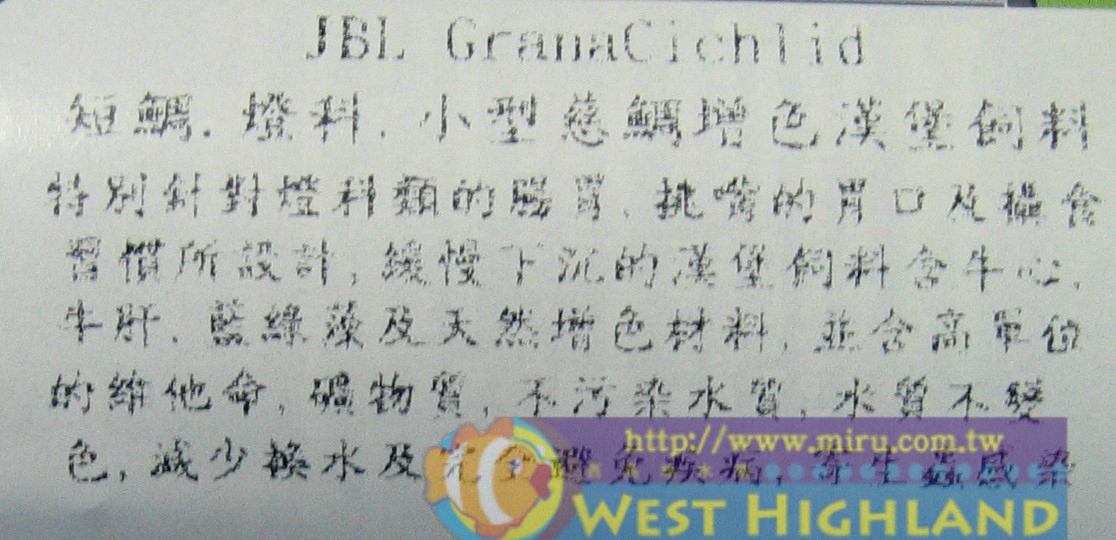 JBL GranaCichlid
短鯛.燈科.小型慈鯛增色漢堡飼料
特別針對燈科類的腸胃.挑嘴的胃口及攝食
習慣所設計,緩慢下沉的漢堡飼料含牛心.
牛肝.藍綠藻及天然增色材料.並含高單位
的維他命,礦物質,不污染水質,水質不變
色,減少換水及完全避免疾病,寄生蟲感染
http://www.miru.com.tw
WEST HIGHLAND